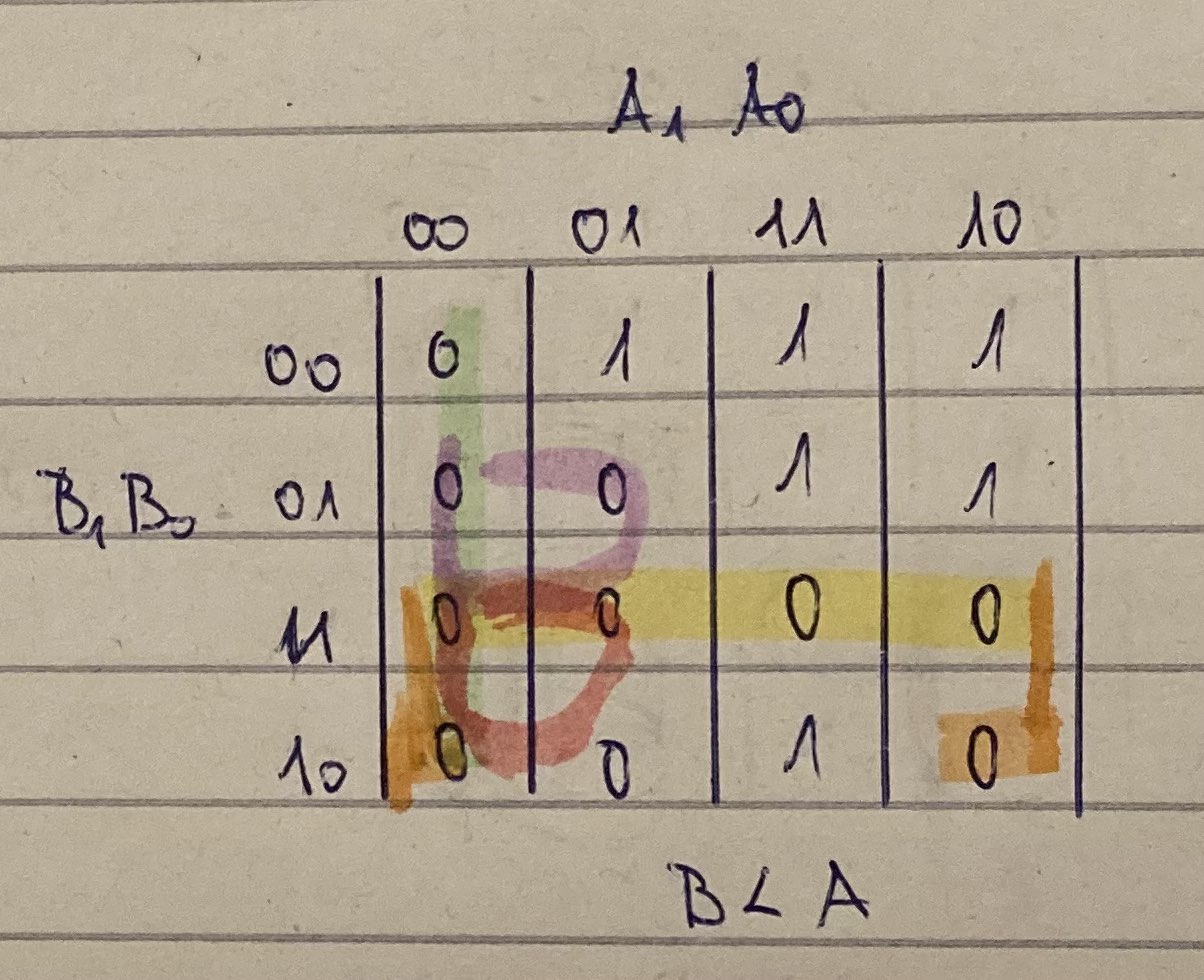 A₁ A₀
00 01 11 10
00 0 1 1 1
B₁ B₀ 01 0 0 1 1
11 0 0 0 0
10 0 0 1 0
B < A